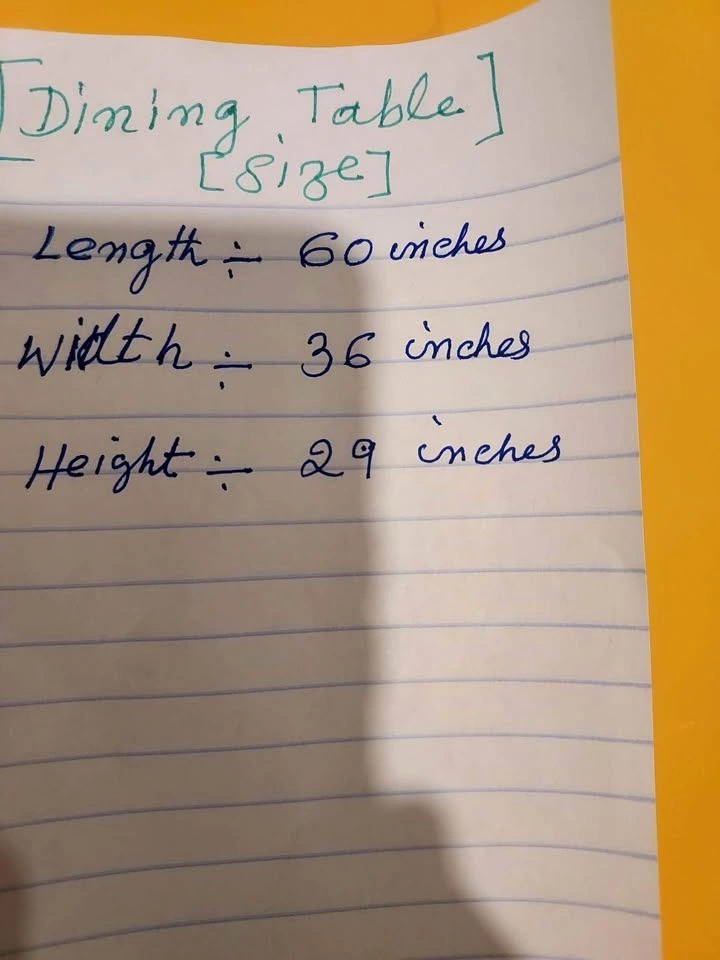 [Dining Table]
[Size]
Length ÷ 60 inches
Width ÷ 36 inches
Height ÷ 29 inches